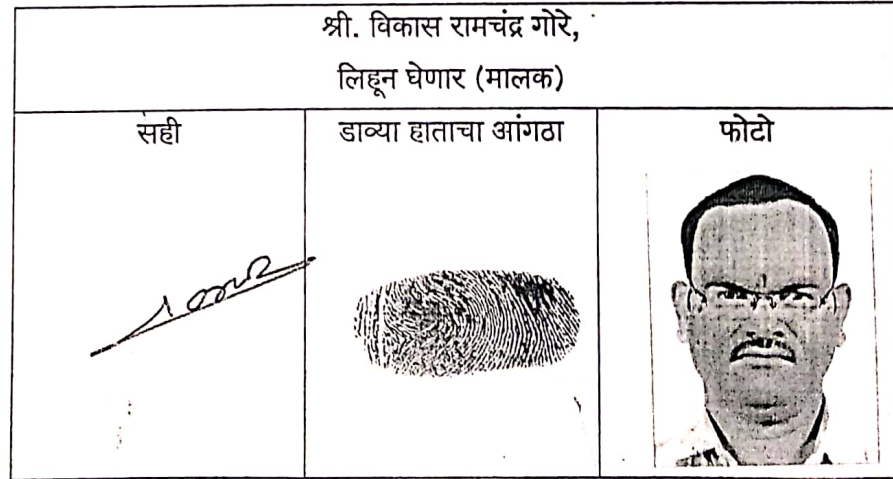 श्री. विकास रामचंद्र गोरे,
लिहून घेणार (मालक)
सही डाव्या हाताचा आंगठा फोटो